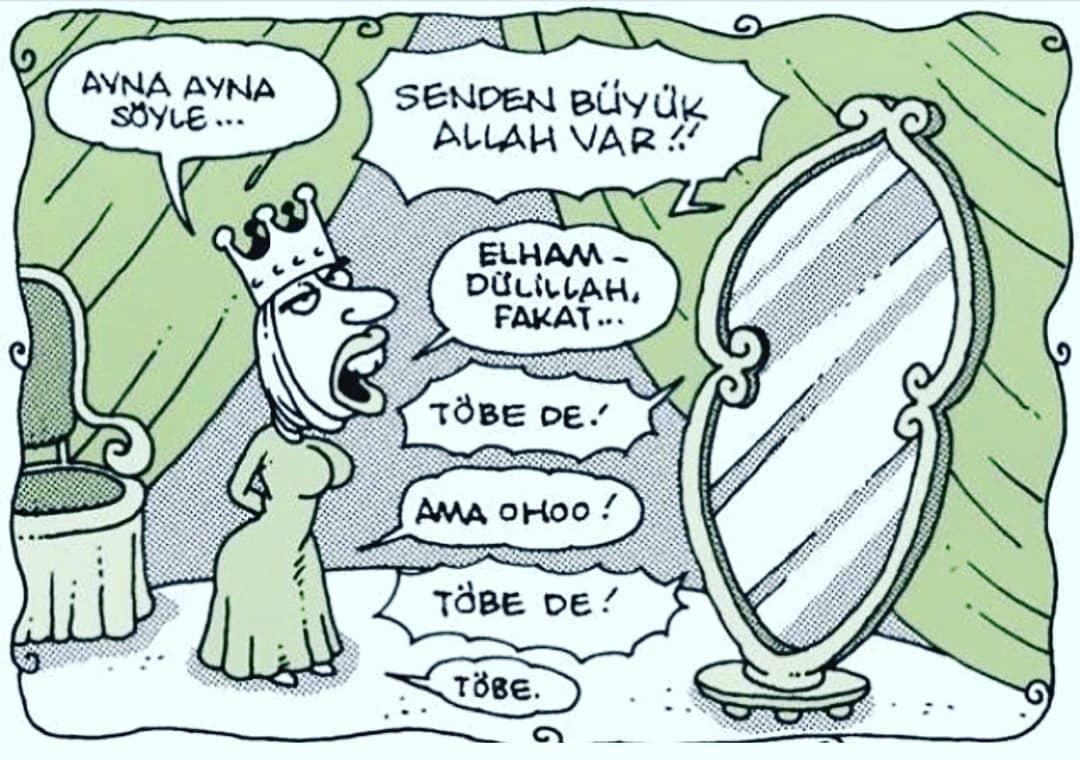 AYNA AYNA
SÖYLE...
SENDEN BÜYÜK
ALLAH VAR!!
ELHAM-
DÜLİLLAH,
FAKAT...
TÖBE DE!
AMA OHOO!
TÖBE DE!
TÖBE.